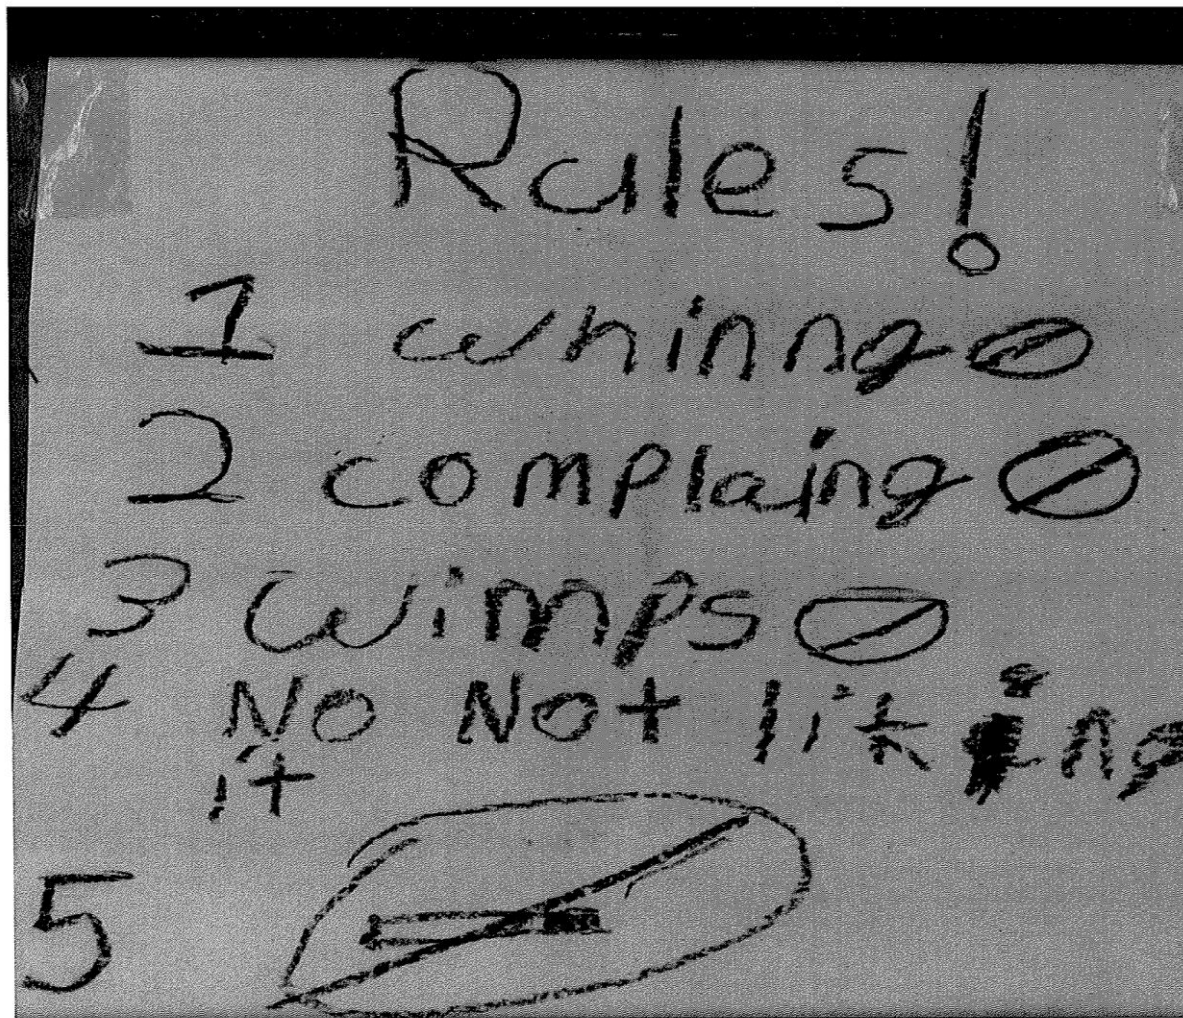 Rules!
1 whinng
2 complaing
3 wimps
4 No Not liking
it
5